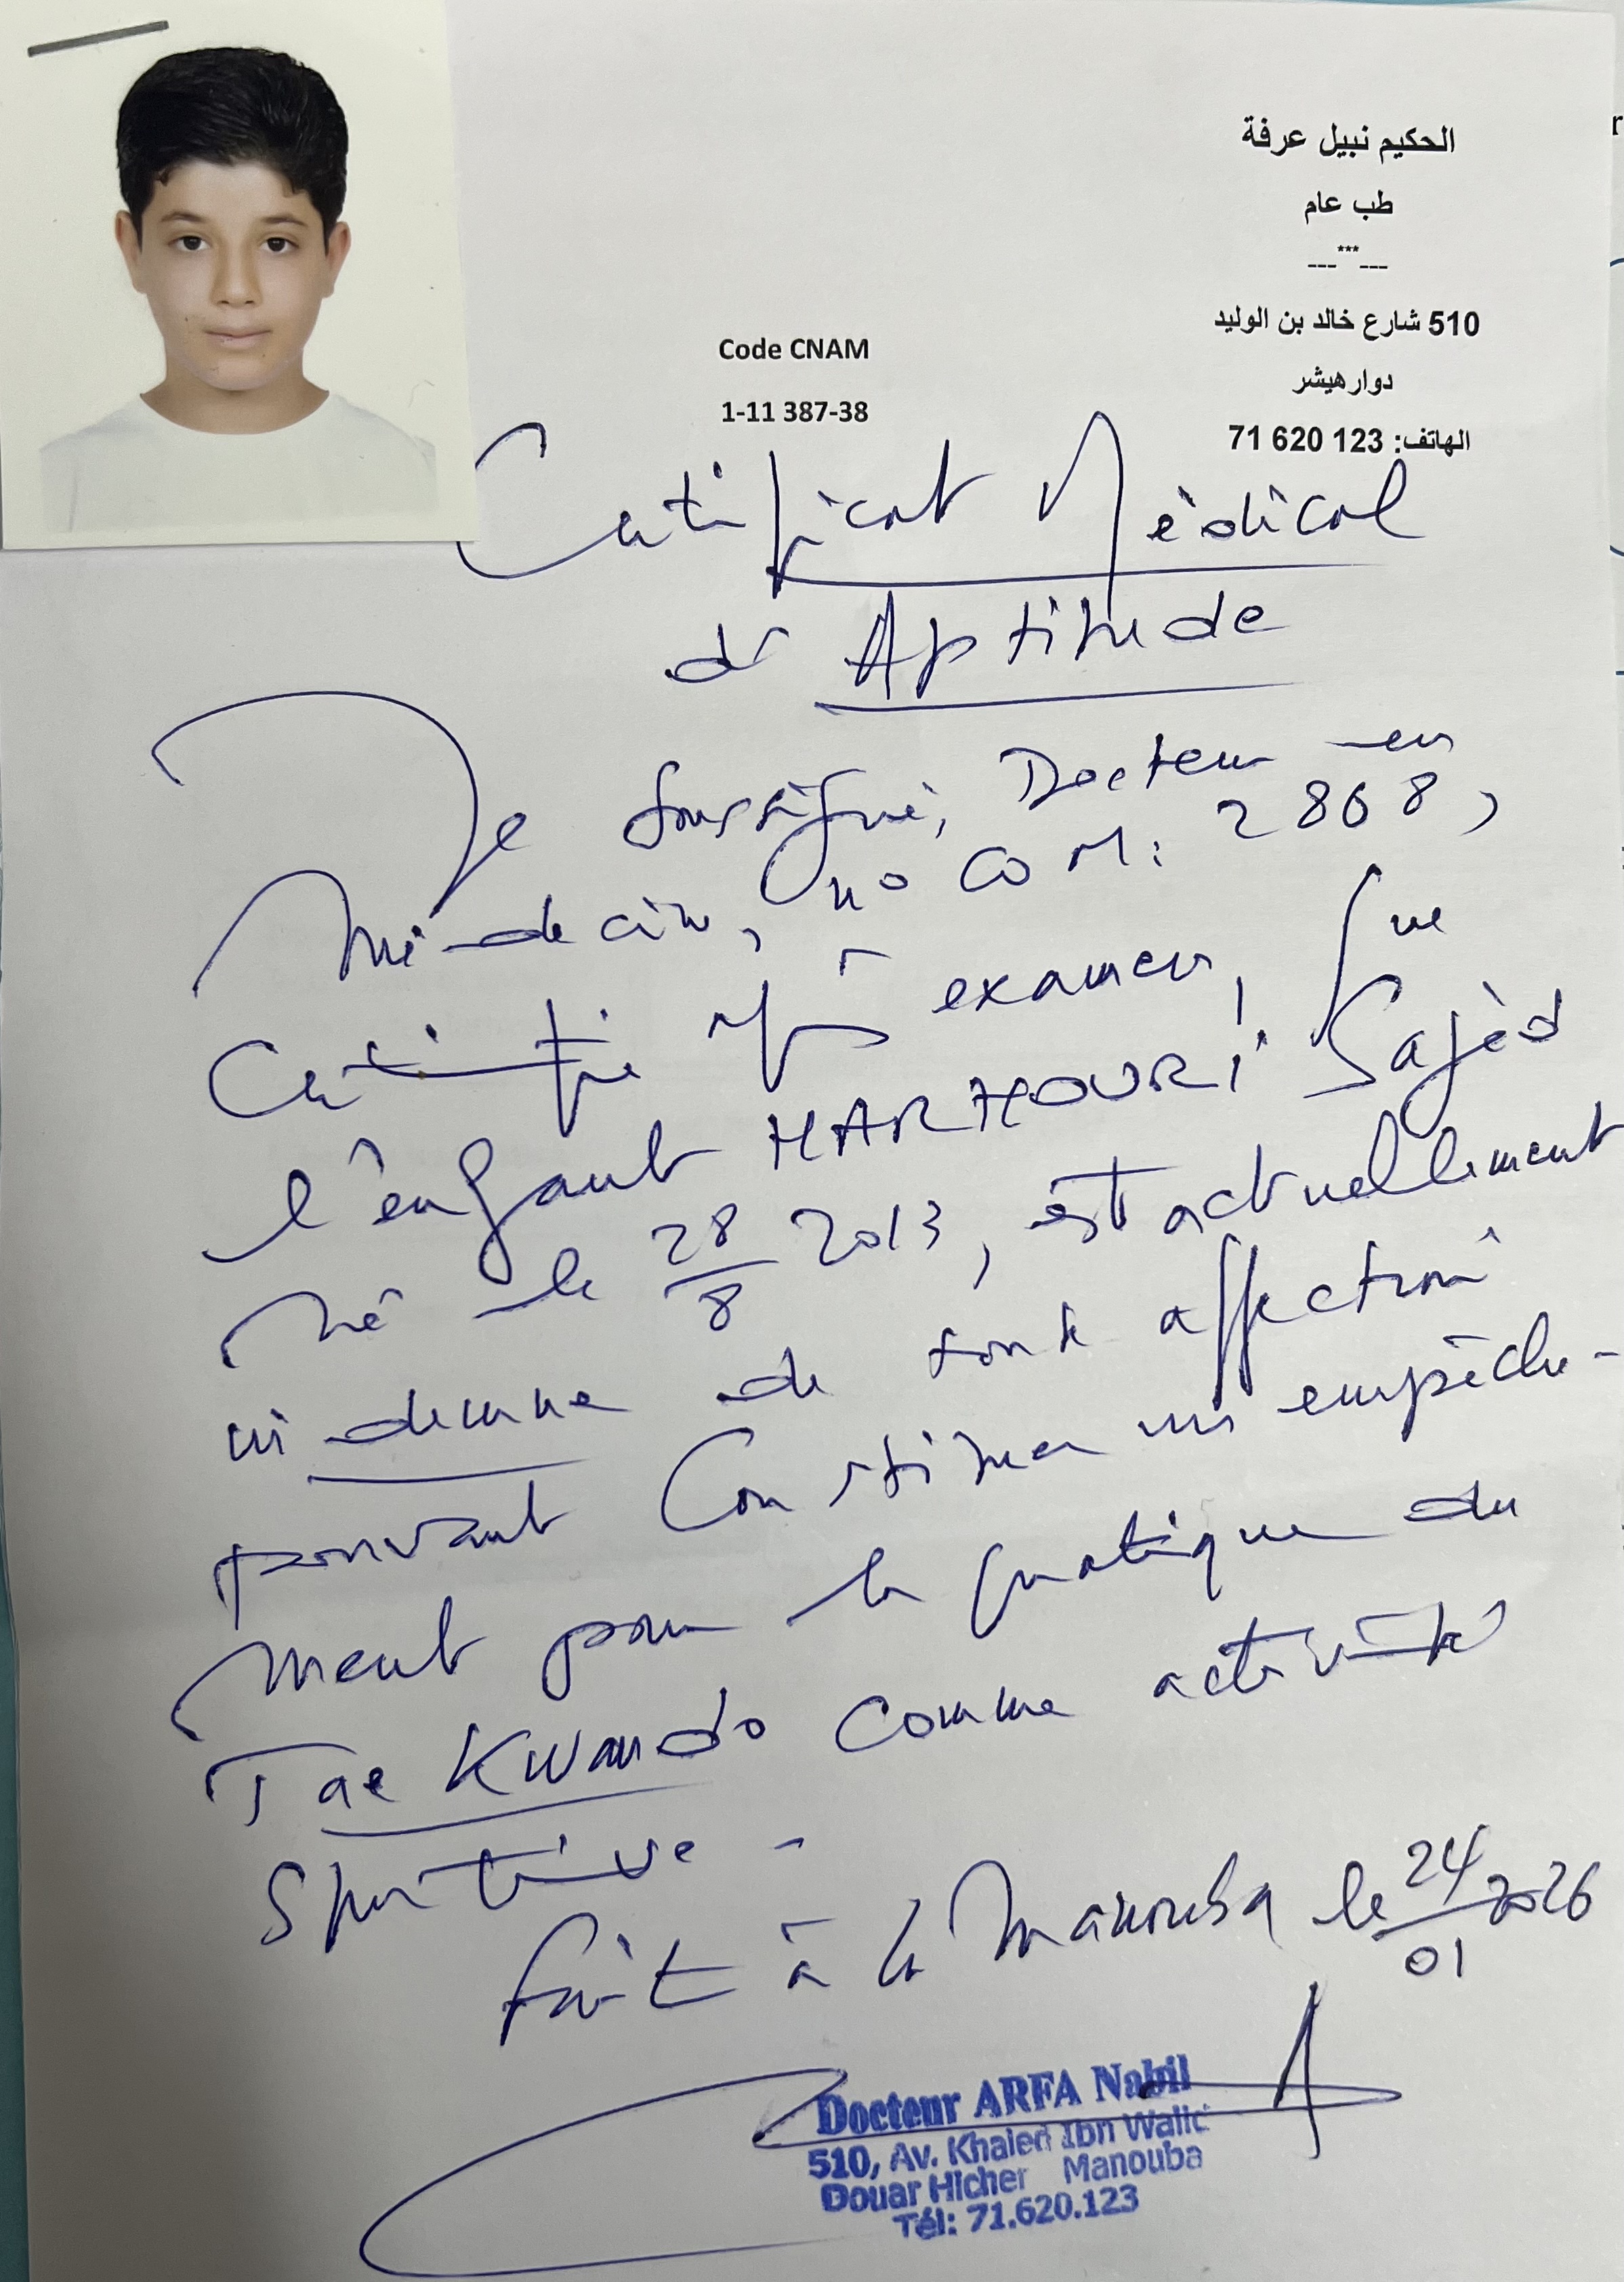 الحكيم نبيل عرفة
طب عام
---***---
510 شارع خالد بن الوليد
دوار هيشر
الهاتف: 123 620 71
Code CNAM
1-11 387-38
Certificat Médical
d'Aptitude
Je soussigné, Docteur en
Médecine, no COM: 2868,
Certifie après examen, que
l'enfant HARHOURI Sajèd
né le 28/8 2013, est actuellement
indemne de toute affection
pouvant constituer un empêche-
ment pour la pratique du
Tae Kwando comme activité
Sportive -
Fait à la Manouba le 24/01 2026
Docteur ARFA Nabil
510, Av. Khaled Ibn Walid
Douar Hicher Manouba
Tél: 71.620.123